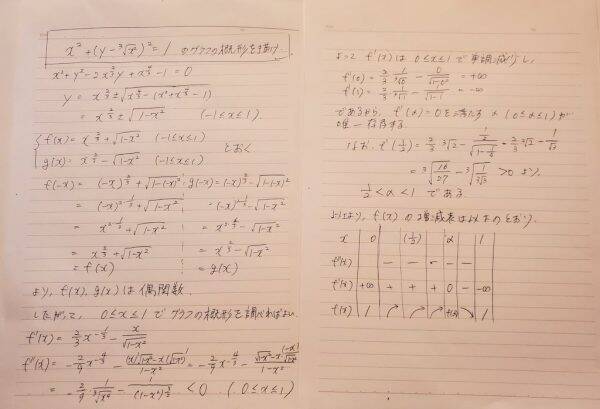 x²+(y-³√x²)²=1 のグラフの概形を描け
x²+y²-2x^{2/3}y+x^{4/3}-1=0
y=x^{2/3}±√(x^{4/3}-(x²+x^{4/3}-1))
=x^{2/3}±√(1-x²) (-1≤x≤1).
{f(x)=x^{2/3}+√(1-x²) (-1≤x≤1)
g(x)=x^{2/3}-√(1-x²) (-1≤x≤1) とおく
f(-x)=(-x)^{2/3}+√(1-(-x)²), g(-x)=(-x)^{2/3}-√(1-(-x)²)
=(-x)^{2·1/3}+√(1-x²) =(-x)^{2·1/3}-√(1-x²)
=x^{2·1/3}+√(1-x²) =x^{2·1/3}-√(1-x²)
=x^{2/3}+√(1-x²) =x^{2/3}-√(1-x²)
=f(x) =g(x)
より, f(x), g(x)は偶関数.
したがって, 0≤x≤1でグラフの概形を調べればよい.
f'(x)=2/3 x^{-1/3}-x/√(1-x²)
f''(x)=-2/9 x^{-4/3}-((x)'√(1-x²)-x(√(1-x²))')/(1-x²)=-2/9 x^{-4/3}-(√(1-x²)-x·(-x)/√(1-x²))/(1-x²)
=-2/9·1/³√x⁴-1/(1-x²)^{3/2}<0 (0≤x≤1)
よって f'(x)は 0≤x≤1 で単調減少し,
f'(0)=2/3·1/³√0-0/√(1-0²)=+∞
f'(1)=2/3·1/³√1-1/√(1-1)=-∞
であるから, f'(α)=0を満たす α(0≤α≤1)が
唯一存在する.
なお, f'(1/2)=2/3·³√2-(1/2)/√(1-1/4)=2/3·³√2-1/√3
=³√(16/27)-³√(1/(3√3))>0 より,
1/2<α<1 である
以上より, f(x)の増減表は以下のとおり.
x 0 (1/2) α 1
f''(x) - - - -
f'(x) +∞ + + + 0 - -∞
f(x) 1 f(α) 1